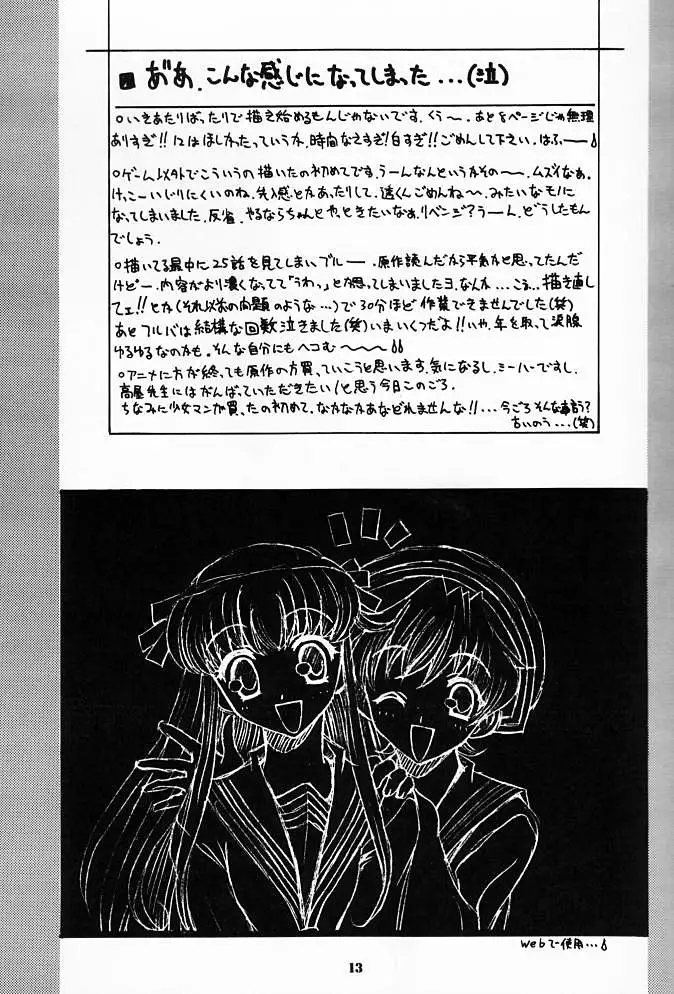 ああ、こんな感じになってしまった...(泣)
○いきあたりばったりで描き始めるもんじゃないです。くぅ〜。あと8ページじゃ無理
ありすぎ!!12はほしかったっていうか、時間なさすぎ!白すぎ!!ごめんして下さい。はふー
○ゲーム以外でこういうの描いたの初めてです。うーんなんというかその〜。ムズイなあ。
けっこーいじりにくいのね。先入感とかあったりして。透くんごめんね〜。みたいなモノに
なってしまいました。反省。やるならちゃんとやっときたいなぁ。リベンジ?うーん。どうしたもん
でしょう。
○描いてる最中に25話を見てしまい、ブルー。原作読んだから平気かと思ってたんだ
けどー。内容がより濃くなってて「うわっ」とか思ってしまいましたヨ。なんか...こう...描き直し
てェ!!とか(それ以前の問題のような...)で30分ほど作業できませんでした(笑)
あとフルバは結構な回数泣きました(笑)いまいくつだよ!!いや、年を取って涙腺
ゆるゆるなのかも。そんな自分にもヘコむ〜
○アニメに方が終っても原作の方買っていこうと思います。気になるし。ミーハーですし。
高屋先生にはがんばっていただきたい!と思う今日このごろ。
ちなみに少女マンガ買ったの初めて。なかなかあなどれませんな!!...今ごろそんな事言う?
ちいのう...(笑)
webで使用...
13